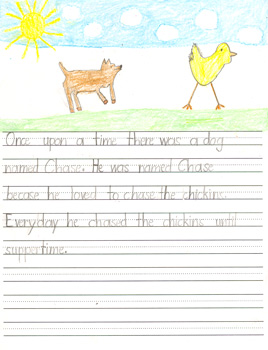 Once upon a time there was a dog
named Chase. He was named Chase
becose he loved to chase the chickins.
Everyday he chased the chickins until
suppertime.